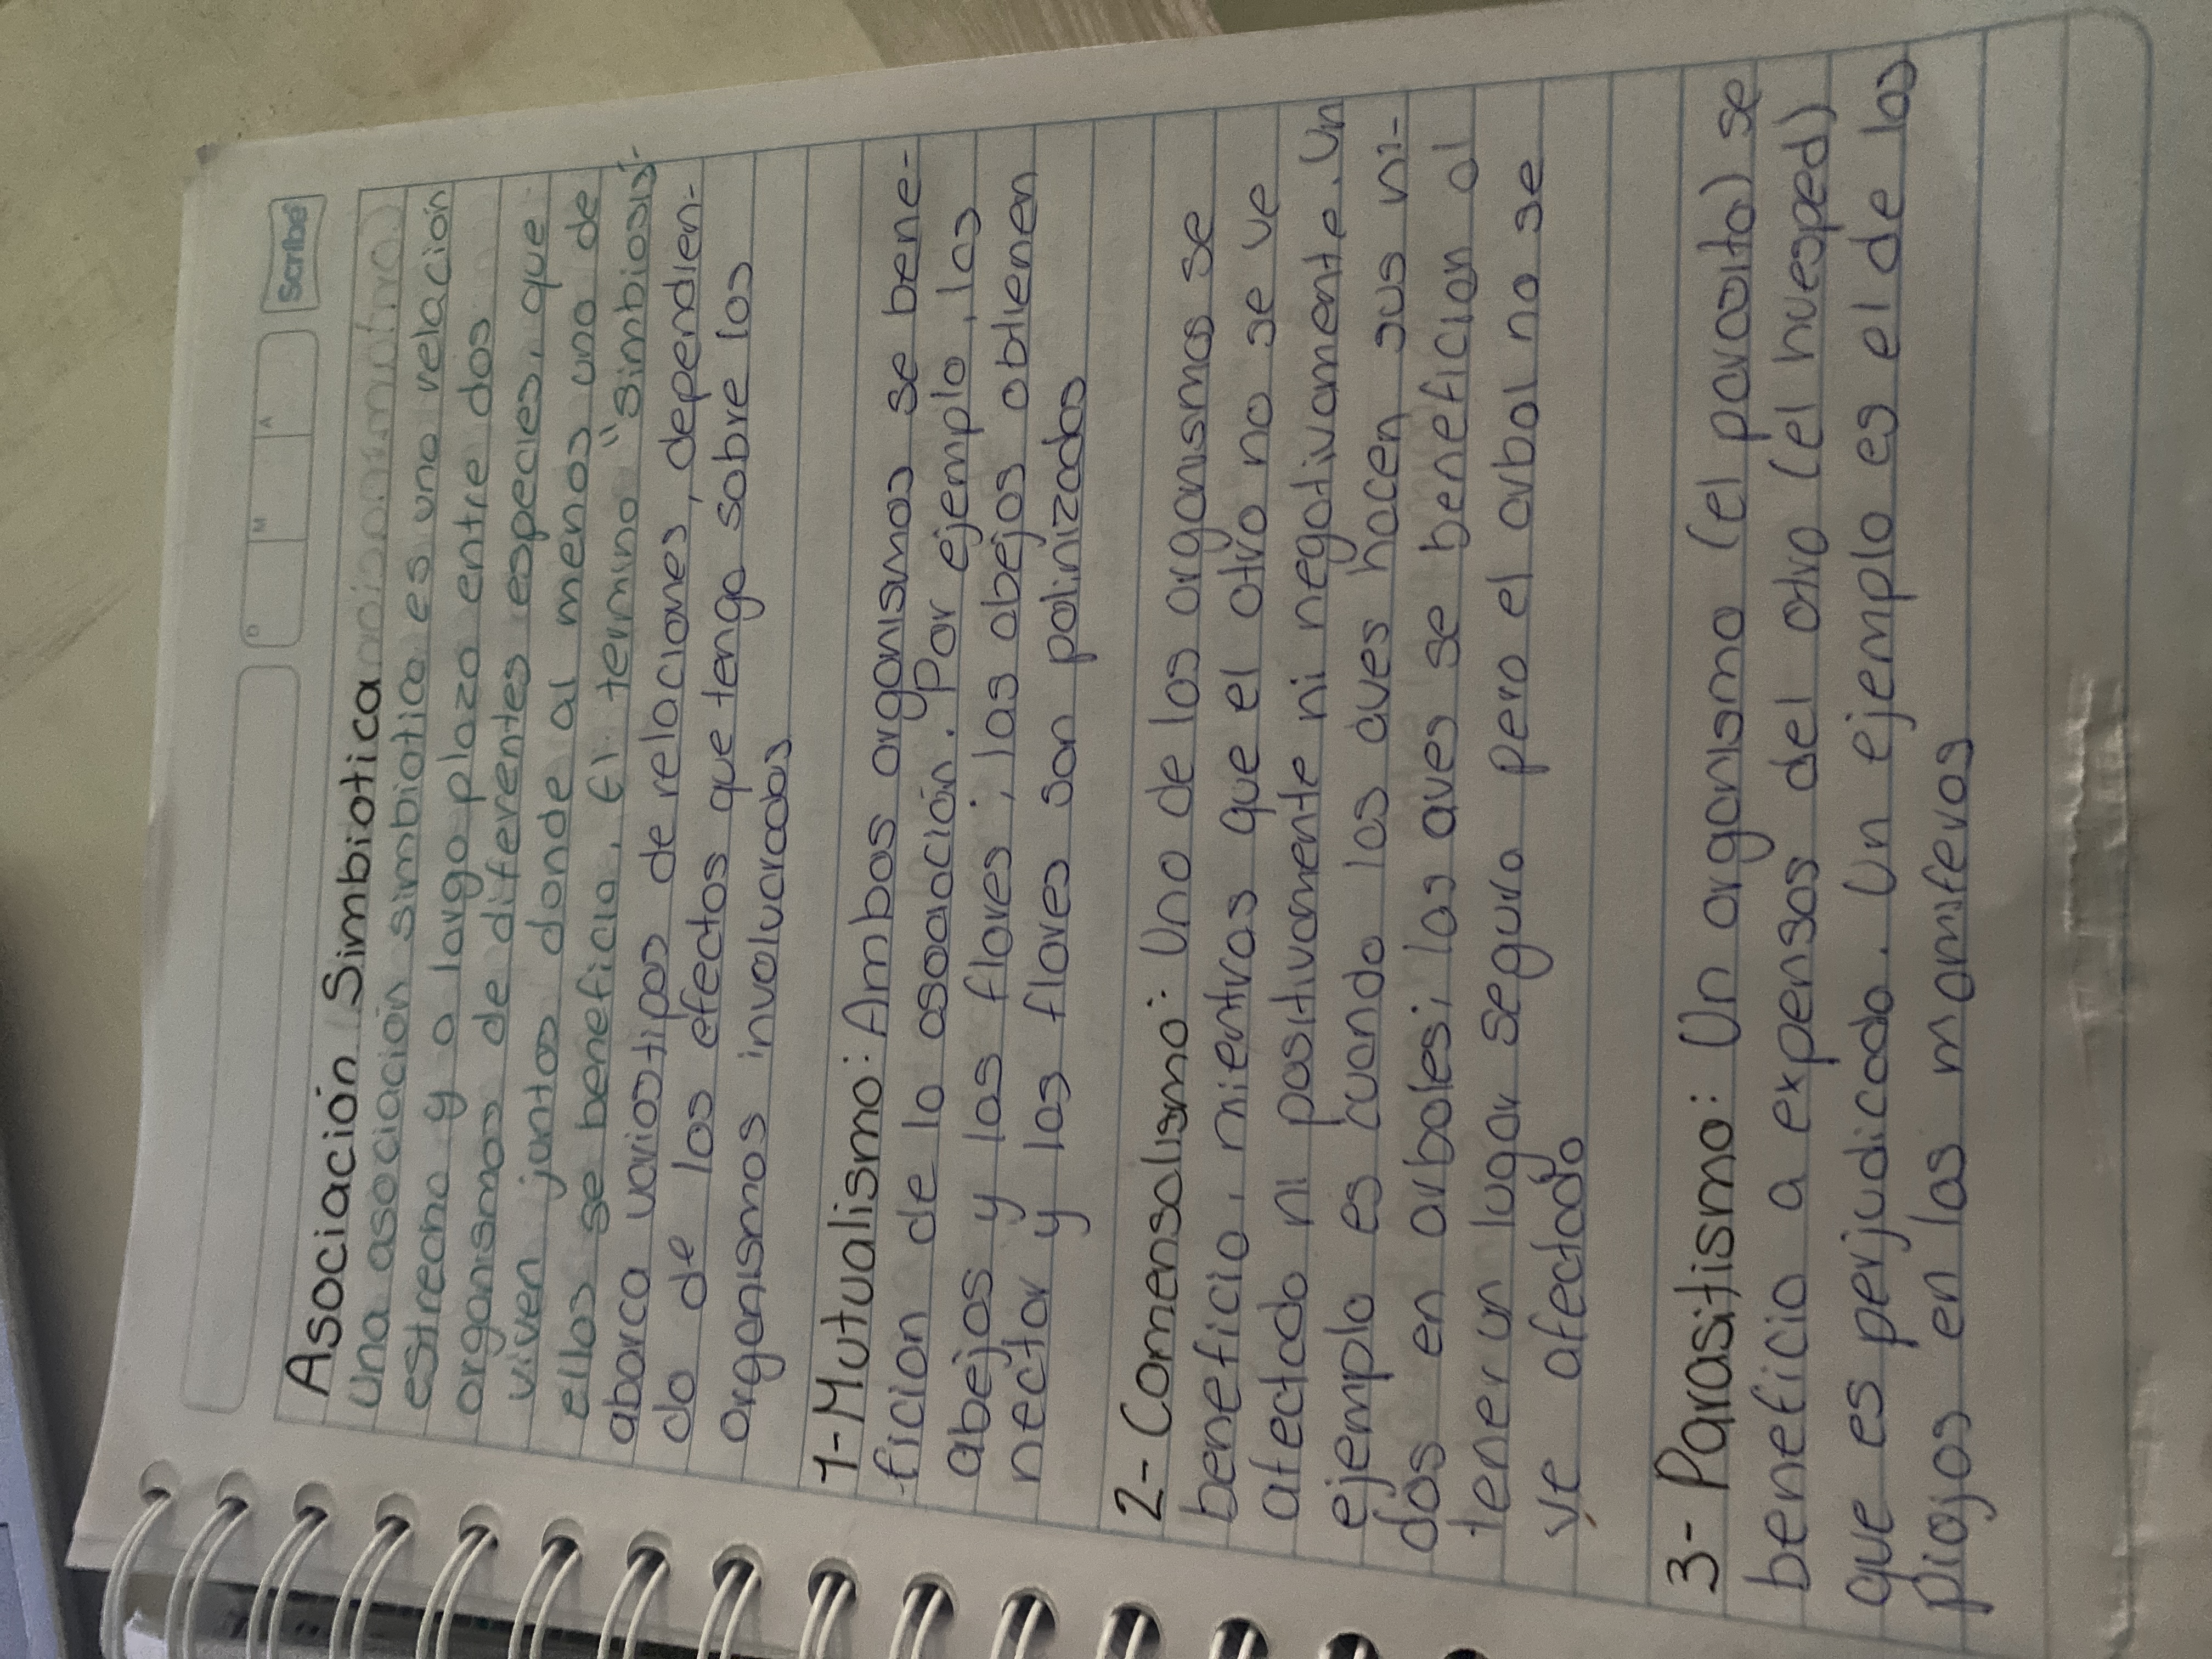 D M A
Scribe
Asociación Simbiotica
Una asociación simbiotica es una relación
estreana y a largo plazo entre dos
organismos de diferentes especies, que
viven juntos donde al menos uno de
ellos se beneficia. El termino "Simbiosis"
abarca varios tipos de relaciones, dependien-
do de los efectos que tenga sobre los
organismos involucrados
1- Mutualismo: Ambos organismos se bene-
fician de la asociación. Por ejemplo, las
abejas y las flores; las abejas obtienen
nectar y las flores son polinizadas
2- Comensalismo: Uno de los organismos se
beneficia, mientras que el otro no se ve
afectado ni positivamente ni negativamente. Un
ejemplo es cuando las aves hacen sus ni-
dos en arboles; las aves se benefician al
tener un lugar seguro pero el arbol no se
ve afectado
3- Parasitismo: Un organismo (el parasito) se
beneficia a expensas del otro (el huesped)
que es perjudicado. Un ejemplo es el de los
piojos en las mamiferos